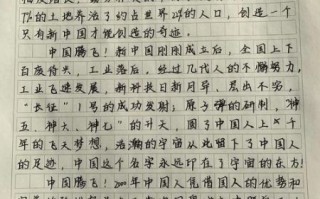 7%的土地养活了约占世界22%的人口，创造一个
只有新中国才能创造的奇迹。
中国腾飞！新中国刚刚成立后，全国上下
百废待兴，工业落后，经过几代人的不懈努力，
工业飞速发展，新科技日新月异、层出不穷，
“长征”1号的成功发射；原子弹的研制，“神
五、神六、神七”的升天，圆了中国人上千
年的飞天梦想，浩瀚的宇宙从此留下了中国人
的足迹，中国这个名字永远印在了宇宙的东方！
中国腾飞！2001年中国人凭借国人的优势和